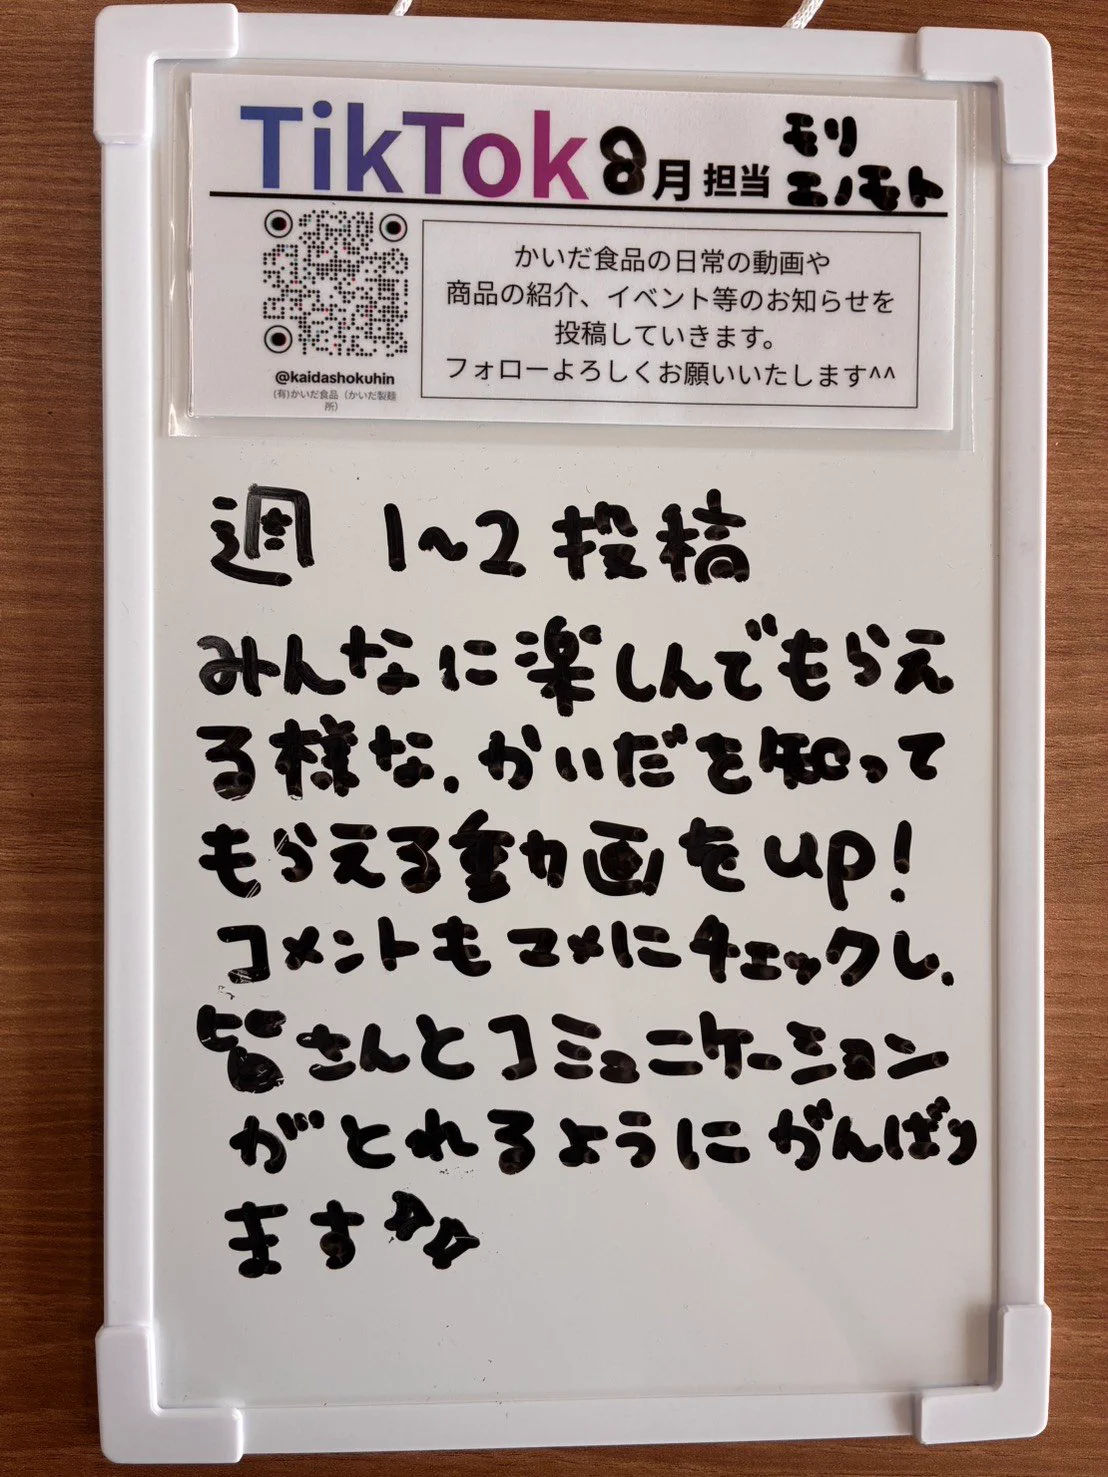 TikTok 8月 担当 モリ エノモト
かいだ食品の日常の動画や
商品の紹介、イベント等のお知らせを
投稿していきます。
フォローよろしくお願いいたします^^
@kaidashokuhin
(有)かいだ食品（かいだ製麺
所）
週 1~2 投稿
みんなに楽しんでもらえ
る様な、かいだを知って
もらえる動画をup!
コメントもマメにチェックし、
皆さんとコミュニケーション
がとれるようにがんばり
ます☆☆